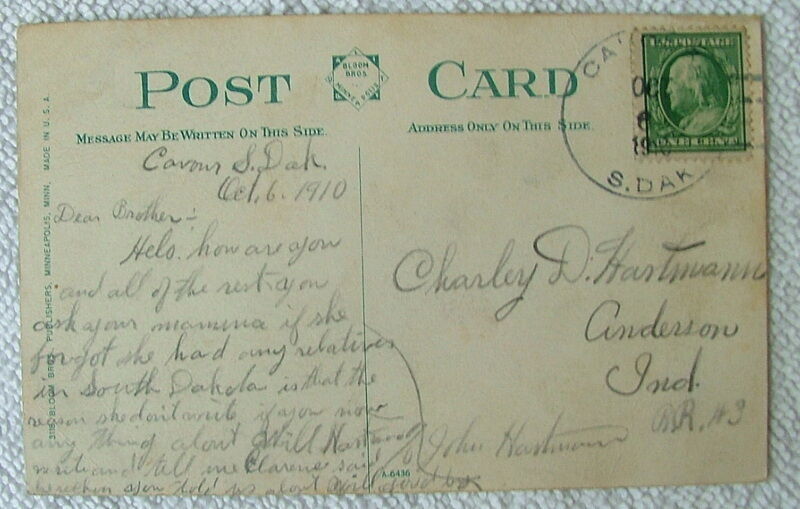 POST CARD
BLOOM BROS. MINNEAPOLIS
MESSAGE MAY BE WRITTEN ON THIS SIDE.
ADDRESS ONLY ON THIS SIDE.
CA
OCT
6
S. DAK
3118, BLOOM BROS. PUBLISHERS, MINNEAPOLIS, MINN. MADE IN U.S.A.
Cavour S. Dak.
Oct. 6. 1910
Dear Brother:
Helo. how are you
and all of the rest. you
ask your mamma if she
forgot she had any relatives
in South Dakota is that the
reason she dont write if you now
any thing about Will Hartman
write and tell me Clarence said
you told us about Will good bye
Charley D. Hartmann
Anderson
Ind.
RR. #3
c/o John Hartmann
A-6436